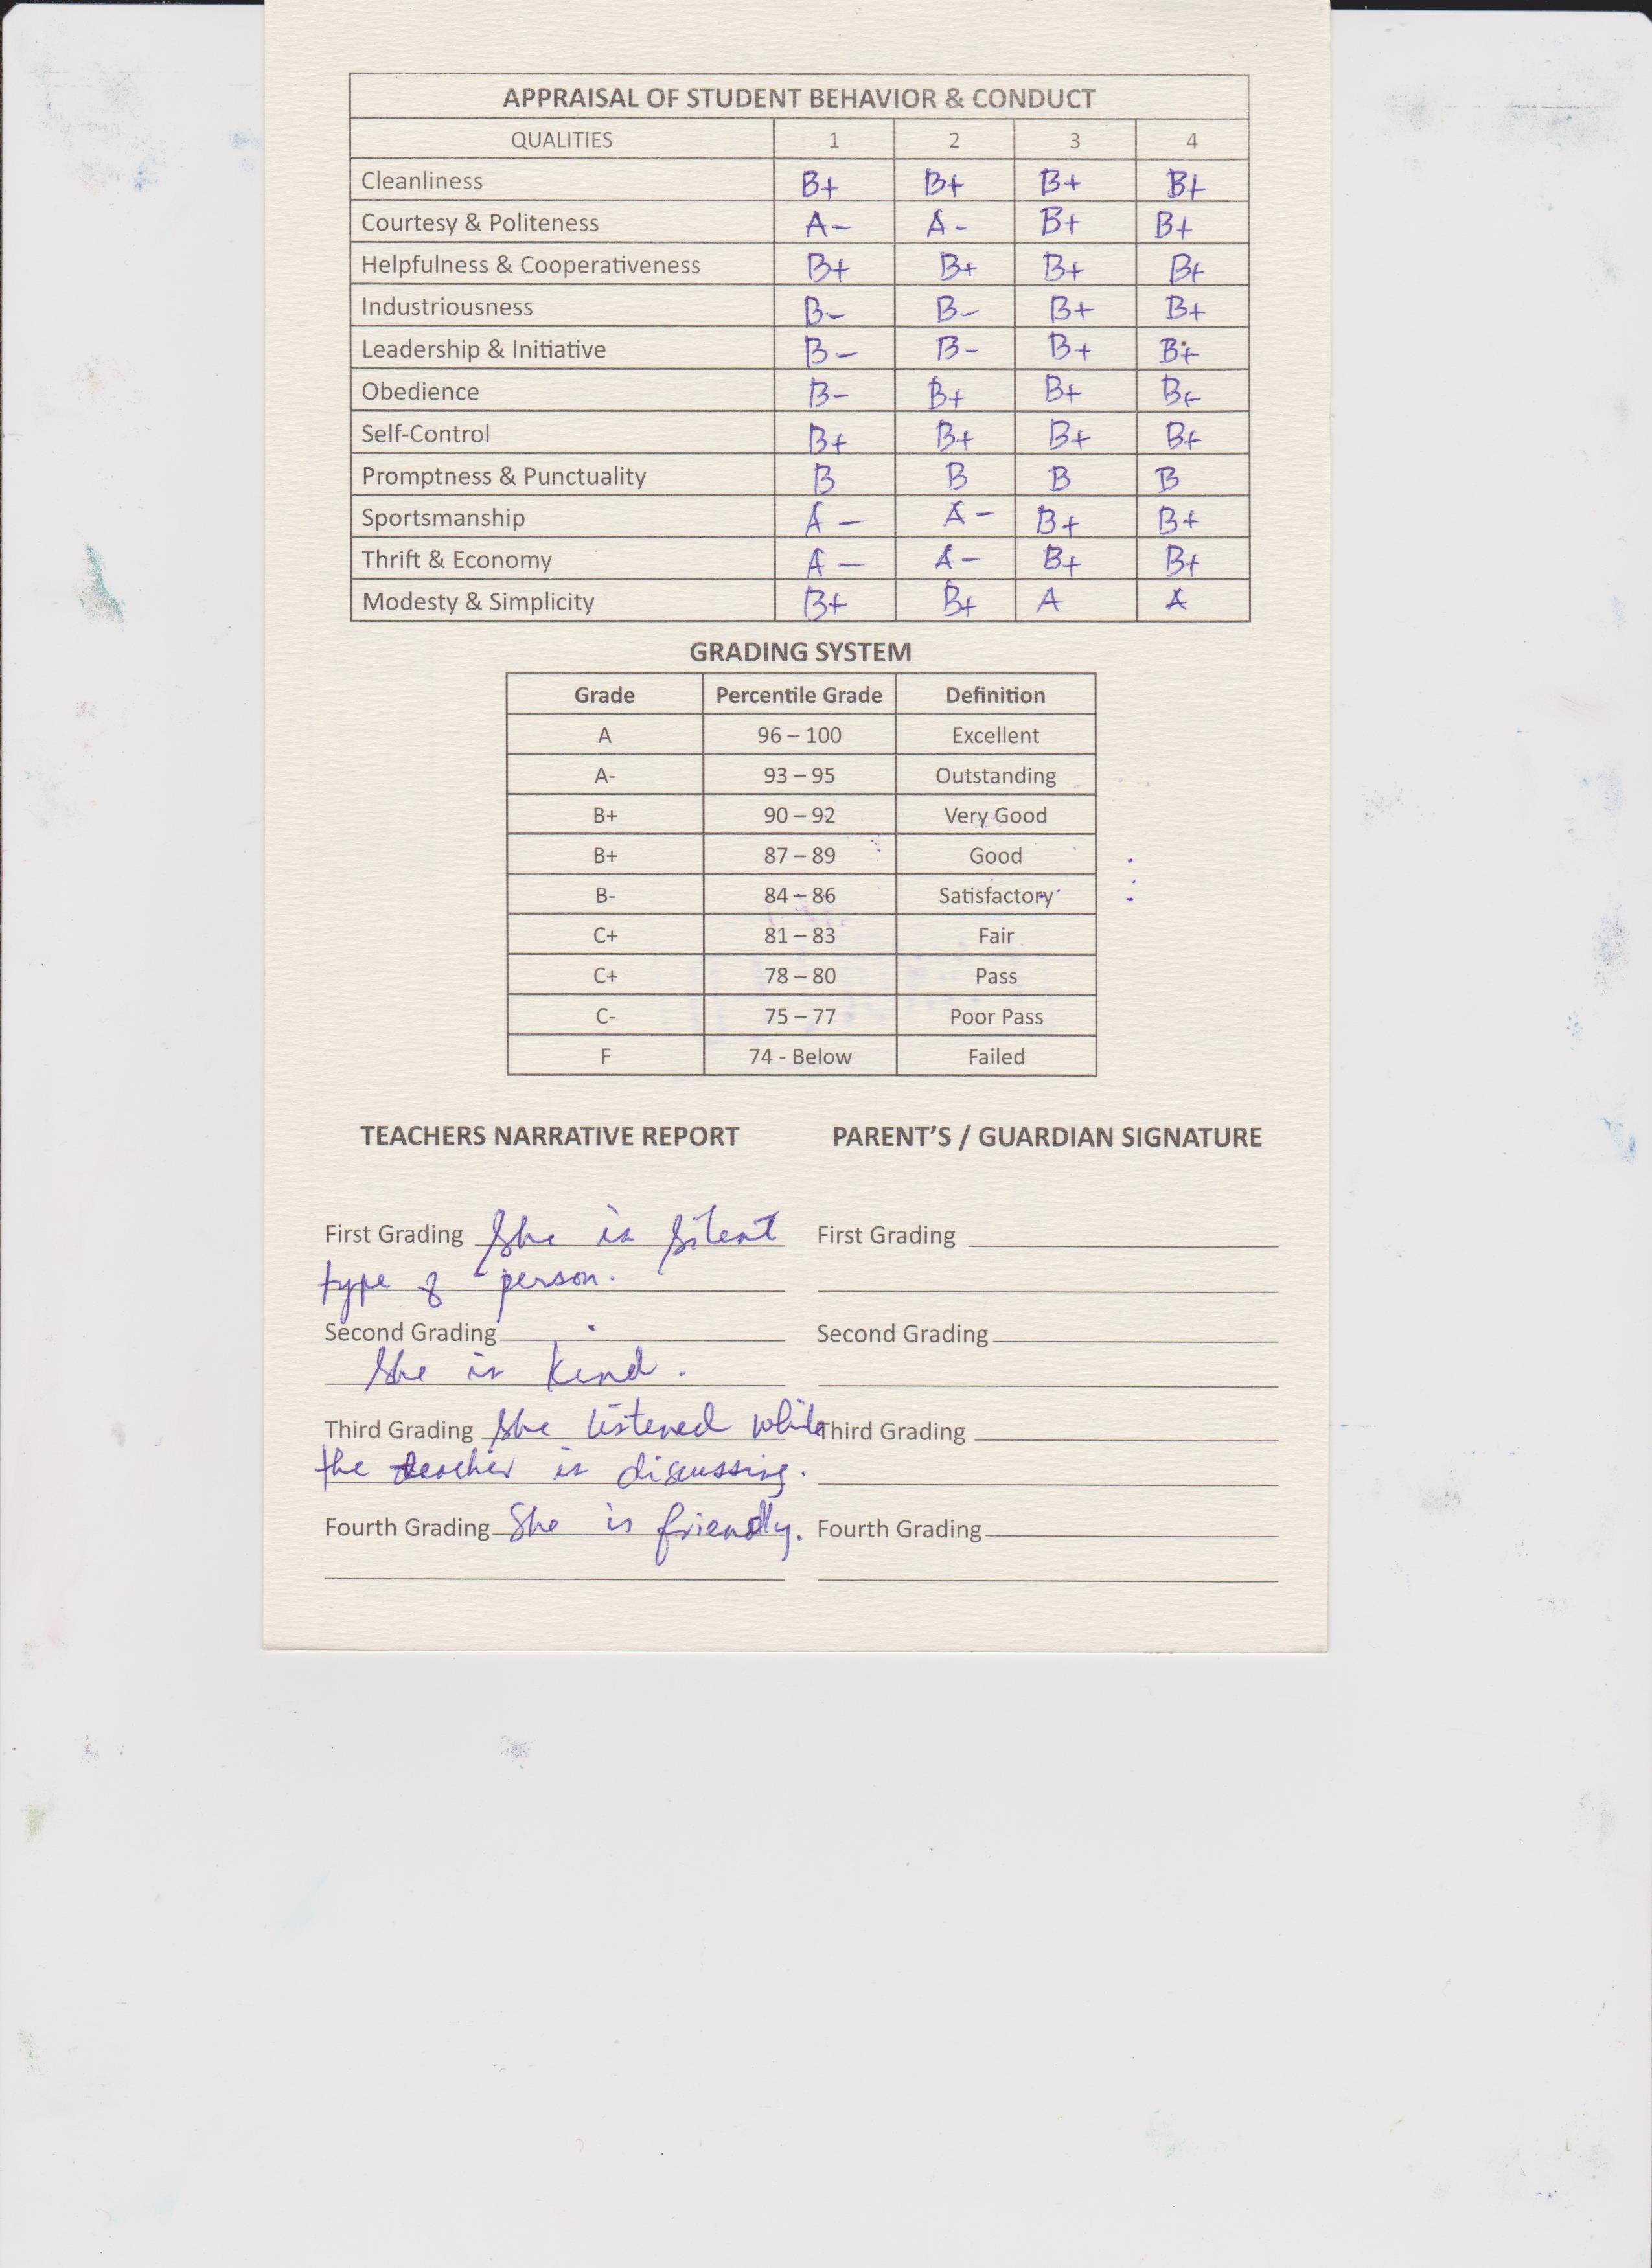 APPRAISAL OF STUDENT BEHAVIOR & CONDUCT
QUALITIES 1 2 3 4
Cleanliness B+ B+ B+ B+
Courtesy & Politeness A- A- B+ B+
Helpfulness & Cooperativeness B+ B+ B+ B+
Industriousness B- B- B+ B+
Leadership & Initiative B- B- B+ B+
Obedience B- B+ B+ B+
Self-Control B+ B+ B+ B+
Promptness & Punctuality B B B B
Sportsmanship A- A- B+ B+
Thrift & Economy A- A- B+ B+
Modesty & Simplicity B+ B+ A A
GRADING SYSTEM
Grade Percentile Grade Definition
A 96 – 100 Excellent
A- 93 – 95 Outstanding
B+ 90 – 92 Very Good
B+ 87 – 89 Good
B- 84 – 86 Satisfactory
C+ 81 – 83 Fair
C+ 78 – 80 Pass
C- 75 – 77 Poor Pass
F 74 - Below Failed
TEACHERS NARRATIVE REPORT PARENT'S / GUARDIAN SIGNATURE
First Grading She is silent First Grading
type of person.
Second Grading Second Grading
She is kind.
Third Grading She listened while Third Grading
the teacher is discussing.
Fourth Grading She is friendly. Fourth Grading